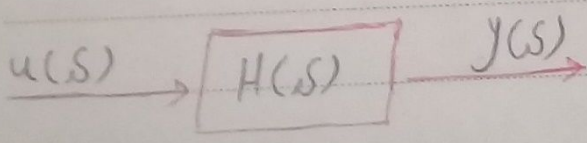 u(s) H(s) y(s)